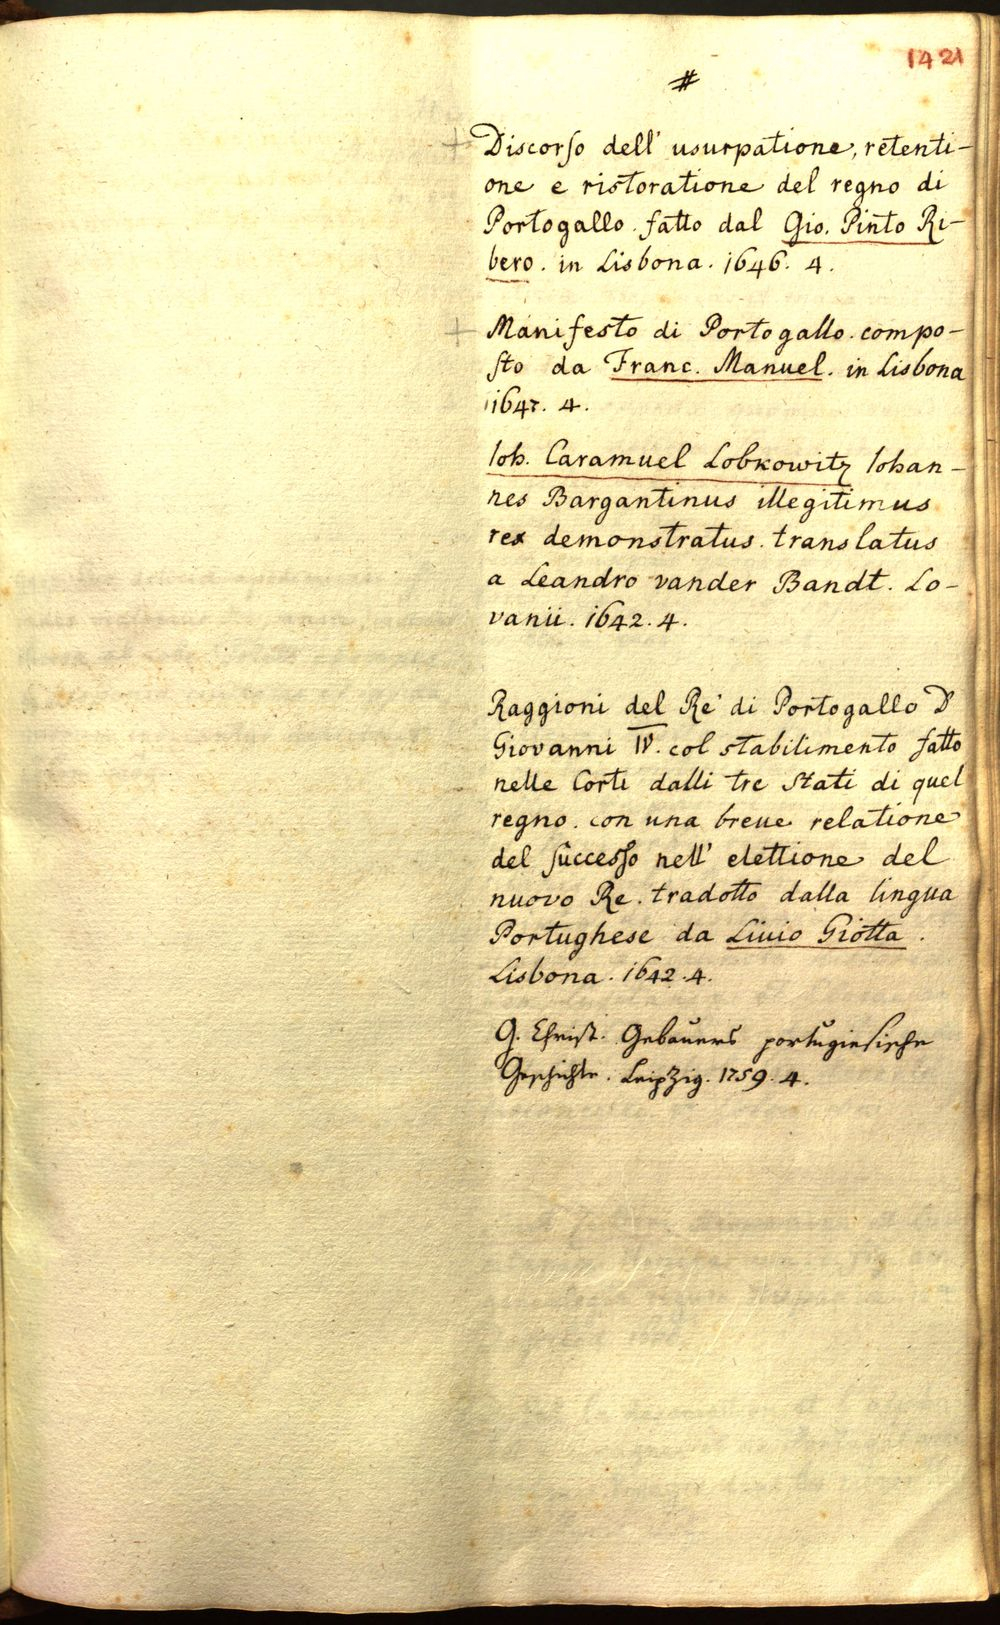 1421
#
+ Discorso dell' usurpatione, retenti-
one e ristoratione del regno di
Portogallo. fatto dal Gio. Pinto Ri-
bero. in Lisbona. 1646. 4.
+ Manifesto di Portogallo. compo-
sto da Franc. Manuel. in Lisbona
1647. 4.
Ioh. Caramuel Lobkowitz Iohan-
nes Bargantinus illegitimus
rex demonstratus. translatus
a Leandro vander Bandt. Lo-
vanii. 1642. 4.
Raggioni del Re' di Portogallo D
Giovanni IV. col stabilimento fatto
nelle Corti dalli tre Stati di quel
regno. con una breue relatione
del successo nell' elettione del
nuovo Re. tradotto dalla lingua
Portughese da Liuio Giotta.
Lisbona. 1642. 4.
G. Christ. Gebauers portugiesische
Geschichte. Leipzig. 1759. 4.